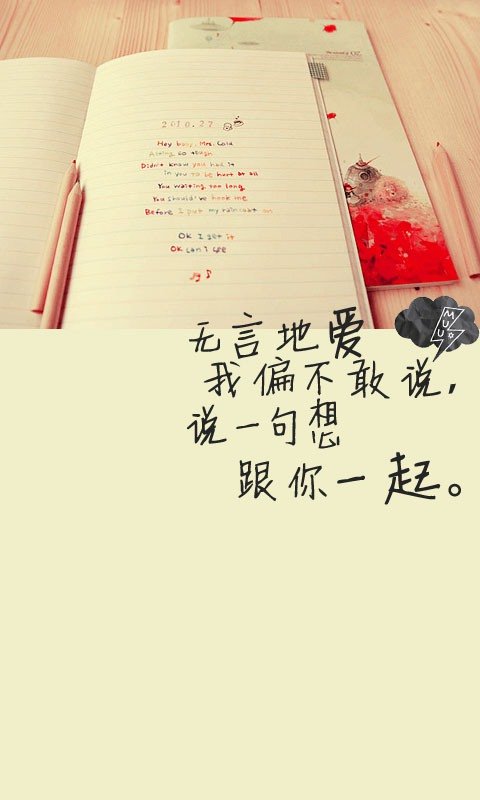 2010.27
Hey baby, Mrs. Cold
Acting so tough
Didn't know you had it
in you to be hurt at all
You waiting too long
You should've hook me
Before I put my raincoat on
OK I get it
OK can I see
无言地爱
我偏不敢说,
说一句想
跟你一起。